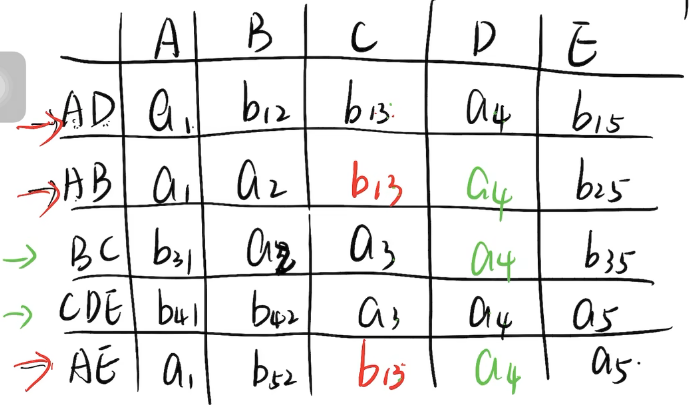 A B C D E
AD a1 b12 b13 a4 b15
AB a1 a2 b13 a4 b25
BC b31 a2 a3 a4 b35
CDE b41 b42 a3 a4 a5
AE a1 b52 b13 a4 a5